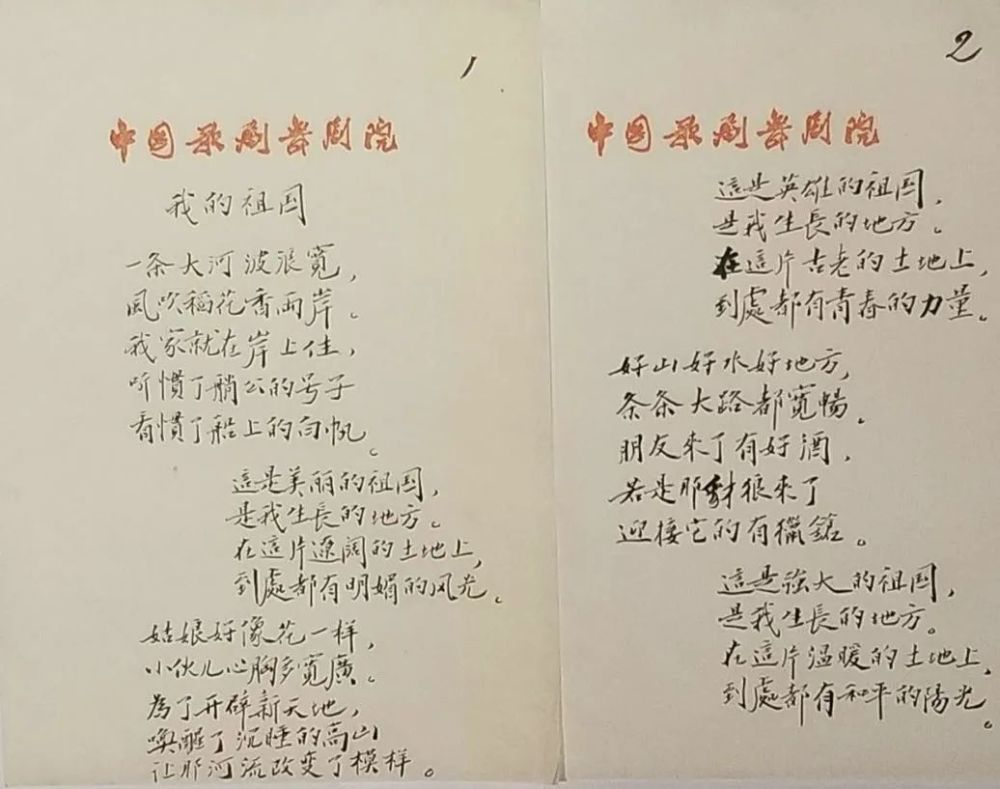 1
中国歌剧舞剧院
我的祖国
一条大河波浪寬，
風吹稻花香兩岸。
我家就在岸上住，
听慣了艄公的号子
看慣了船上的白帆。
這是美丽的祖国，
是我生長的地方。
在這片遼阔的土地上，
到處都有明媚的风光。
姑娘好像花一样，
小伙儿心胸多寬廣。
為了开辟新天地，
唤醒了沉睡的高山
让那河流改变了模样。
2
中国歌剧舞剧院
這是英雄的祖国，
是我生長的地方。
在這片古老的土地上，
到處都有青春的力量。
好山好水好地方，
条条大路都寬暢。
朋友來了有好酒，
若是那豺狼來了
迎接它的有獵鎗。
這是強大的祖国，
是我生長的地方。
在這片温暖的土地上，
到處都有和平的陽光。